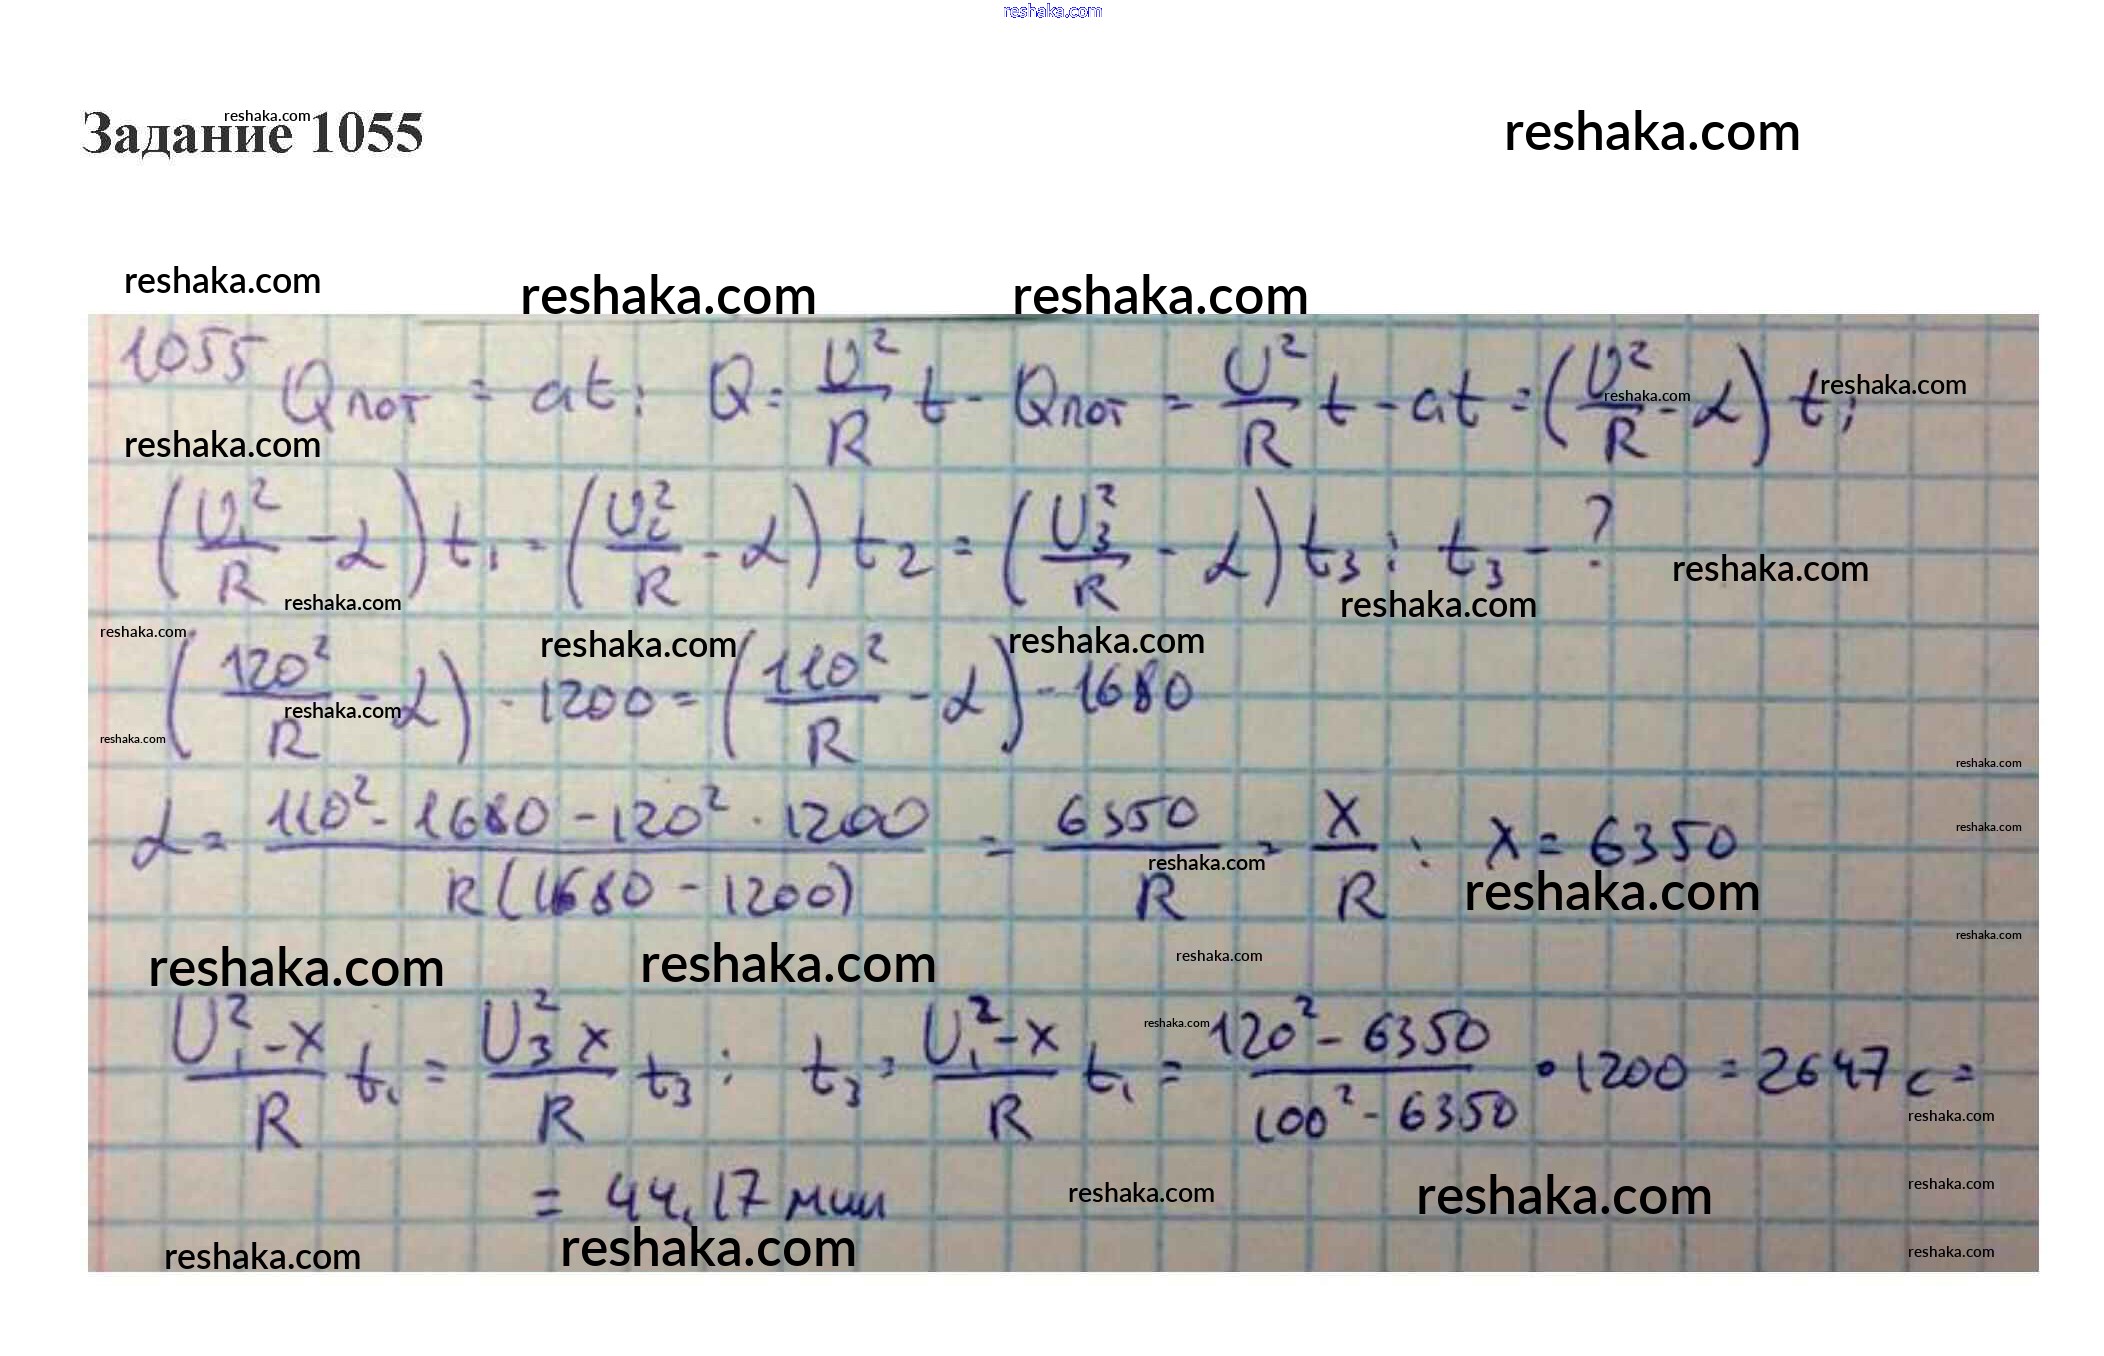 reshaka.com
Задание 1055
reshaka.com
reshaka.com
reshaka.com
reshaka.com
reshaka.com
1055 Qпот = at; Q = U²/R t - Qпот = U²/R t - at = (U²/R - α) t;
reshaka.com
reshaka.com
reshaka.com
(U₁²/R - α) t₁ = (U₂²/R - α) t₂ = (U₃²/R - α) t₃; t₃ - ?
reshaka.com
reshaka.com
reshaka.com
reshaka.com
reshaka.com
reshaka.com
(120²/R - α) · 1200 = (110²/R - α) · 1680
reshaka.com
reshaka.com
reshaka.com
α = 110² · 1680 - 120² · 1200 / R(1680 - 1200) = 6350/R = x/R; x = 6350
reshaka.com
reshaka.com
reshaka.com
reshaka.com
reshaka.com
reshaka.com
reshaka.com
reshaka.com
U₁² - x/R t₁ = U₃² x/R t₃; t₃ = U₁² - x/R t₁ = 120² - 6350/100² - 6350 • 1200 = 2647 с =
reshaka.com
= 44,17 мин
reshaka.com
reshaka.com
reshaka.com
reshaka.com
reshaka.com
reshaka.com